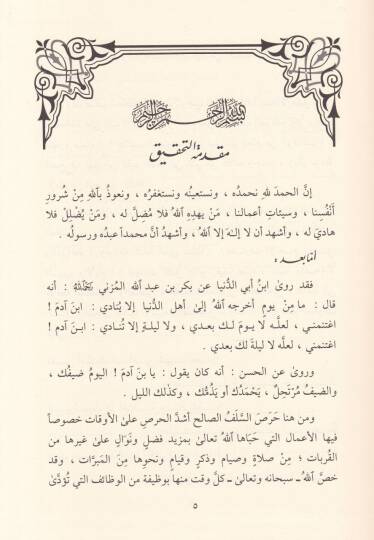 بسم الله الرحمن الرحيم
مقدمة التحقيق
إنَّ الحمدَ للهِ نحمدُه ، ونستعينُه ونستغفرُه ، ونعوذُ باللهِ مِنْ شُرورِ
أَنْفُسِنا ، وسيئاتِ أعمالنا ، مَنْ يهدِهِ اللهُ فلا مُضِلَّ له ، ومَنْ يُضْلِلْ فلا
هاديَ له ، وأشهد أن لا إلـٰهَ إلا اللهُ ، وأشهدُ أنَّ محمداً عبدُه ورسولُه .
أمّا بعد :
فقد روىٰ ابنُ أبي الدُّنيا عن بكرِ بن عبدِ اللهِ المُزني رَحِمَهُ اللهُ : أنه
قال : ما مِنْ يومٍ أخرجه اللهُ إلىٰ أهلِ الدُّنيا إلا يُنادي : ابنَ آدمَ !
اغتنمني ، لعلَّـه لا يـومَ لـك بعـدي ، ولا ليلـةٍ إلا تُنـادي : ابـنَ آدم !
اغتنمني ، لعلَّه لا ليلةَ لك بعدي .
وروىٰ عن الحسن : أنه كان يقول : يا بنَ آدمَ ! اليومُ ضيفُك ،
والضيفُ مُرْتَحِلٌ ، يَحْمَدُك أو يَذُمُّك ، وكذٰلك الليل .
ومن هنا حَرَصَ السَّلَفُ الصالح أشدَّ الحرصِ علىٰ الأوقات خصوصاً
فيها الأعمال التي حَبَاها اللهُ تعالىٰ بمزيد فضلٍ ونَوَالٍ علىٰ غيرها من
القُربات ؛ مِنْ صلاةٍ وصيامٍ وذكرٍ وقيامٍ ونحوِها مِنَ المَبَرَّات ، وقد
خصَّ اللهُ ـ سبحانه وتعالىٰ ـ كلَّ وقت منها بوظيفة من الوظائف التي تُؤدَّىٰ
٥